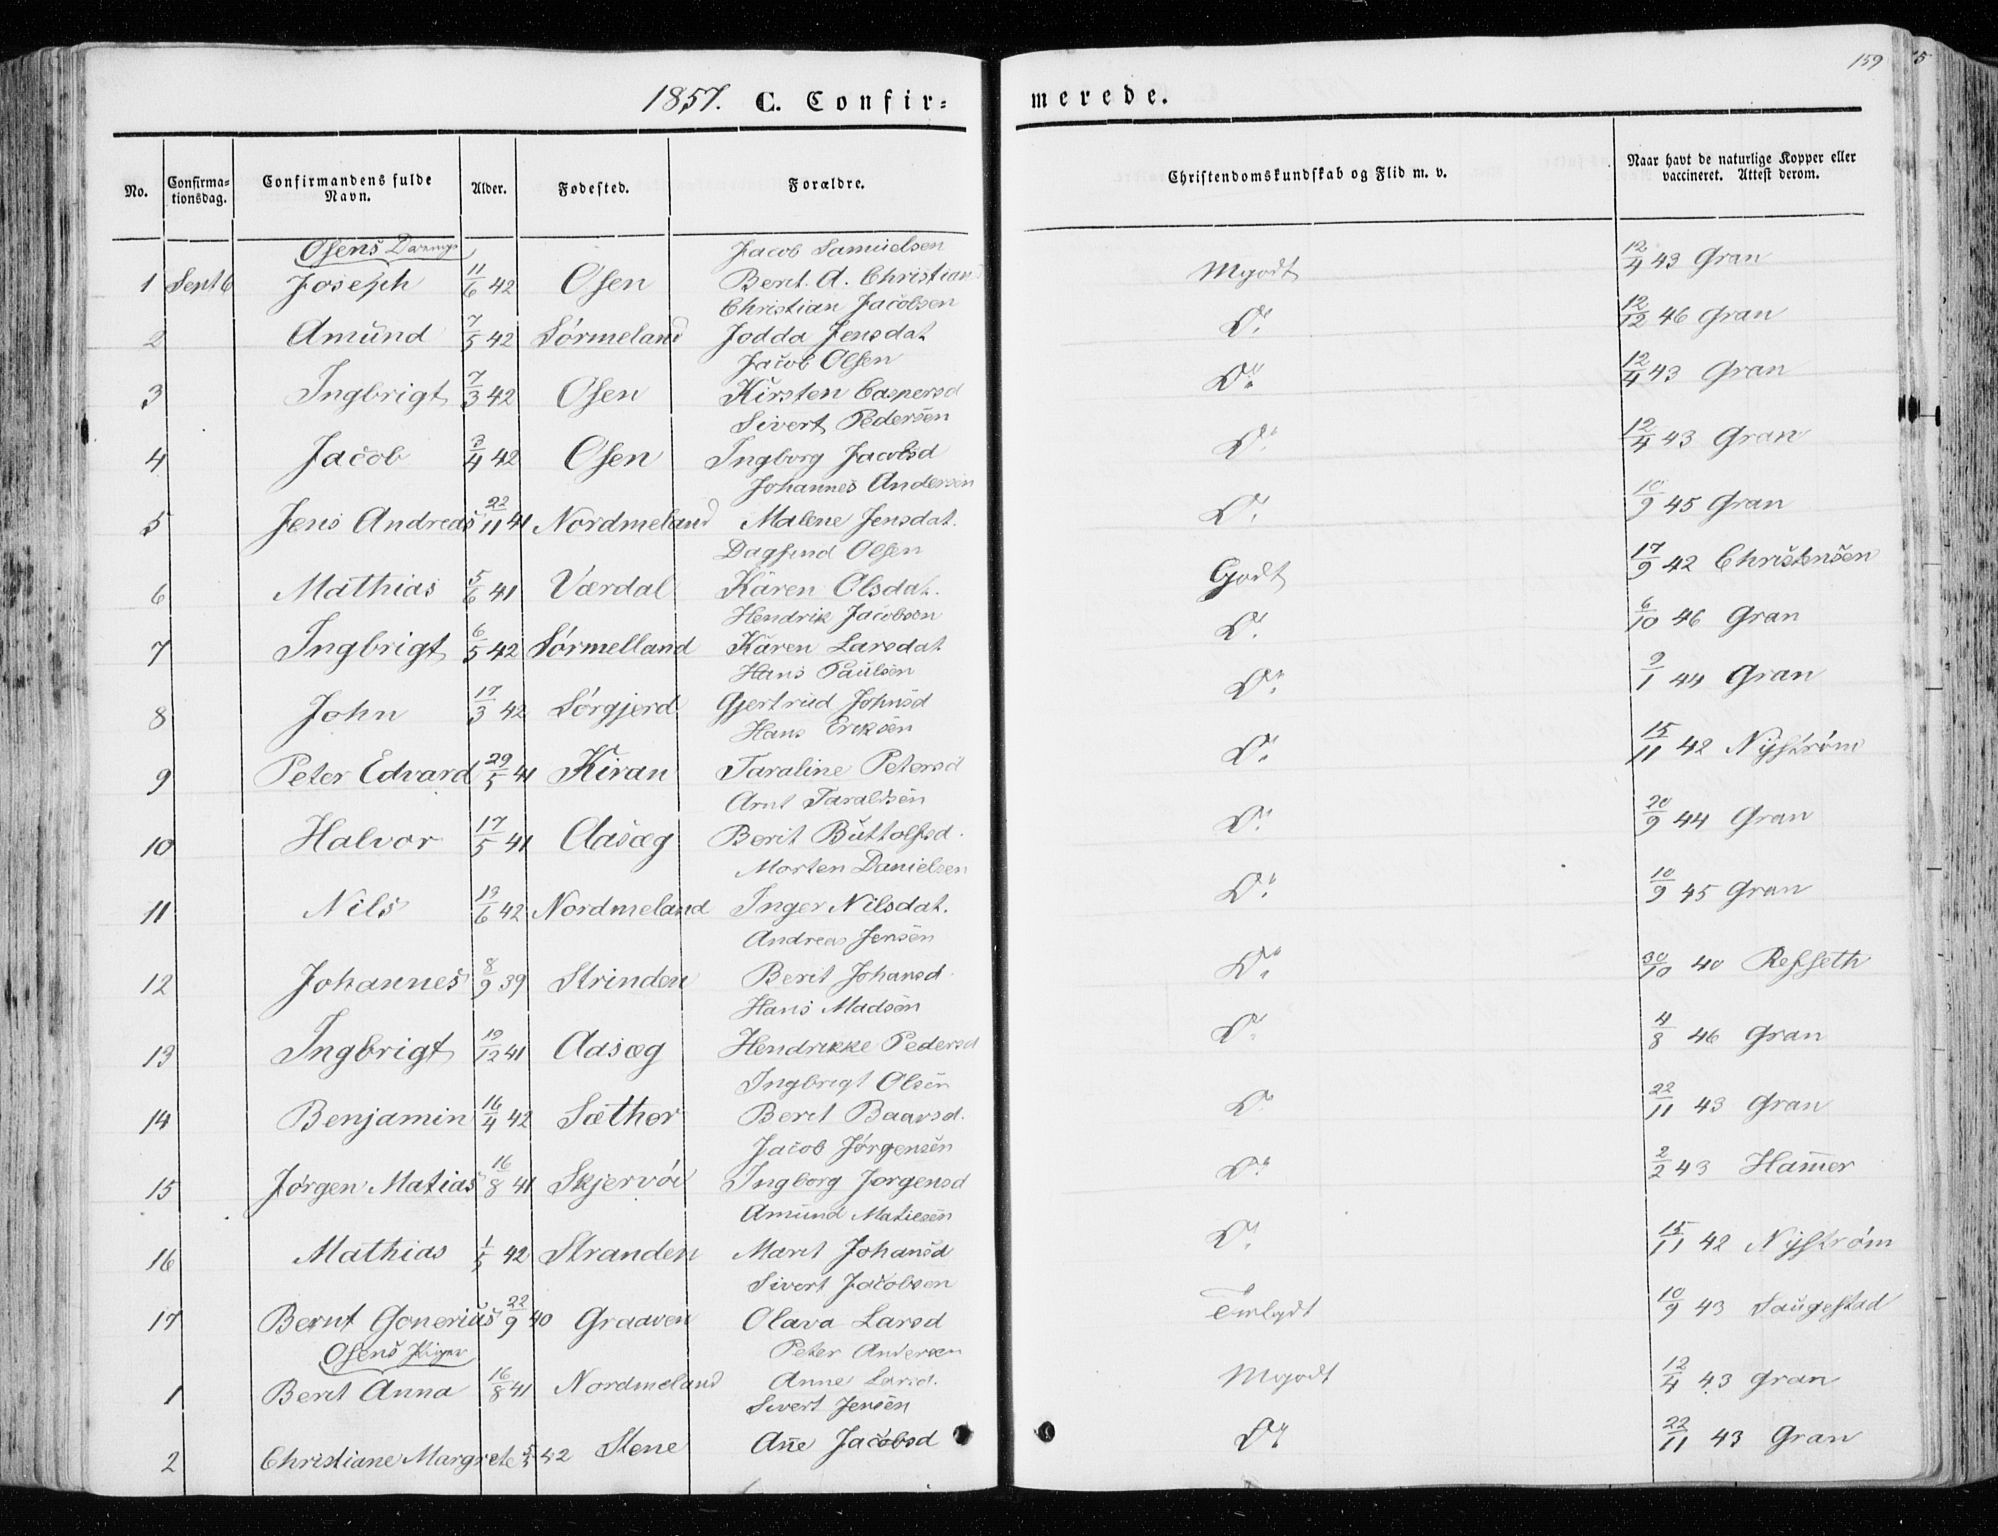 159
1857. C. Confir=
merede.
No. Confirma=tionsdag. Confirmandens fulde Navn. Alder. Fødested. Forældre. Christendomskundskab og Flid m. v. Naar havt de naturlige Kopper eller vaccineret. Attest derom.
Osens Drenge Jacob Samuelsen
1 Sept 6 Joseph 11/6 42 Osen Berit A. Christian Mgodt 12/4 43 Gran
Christian Jacobsen
2 Amund 7/5 42 Sørmeland Jodda Jensdat Do 12/12 46 Gran
Jacob Olsen
3 Ingbrigt 7/3 42 Osen Kirsten Caspersd Do 12/4 43 Gran
Sivert Pedersen
4 Jacob 3/4 42 Osen Ingborg Jacobsd Do 12/4 43 Gran
Johannes Andersen
5 Jens Andreas 22/11 41 Nordmeland Malene Jensdat. Do 10/9 45 Gran
Dagfind Olsen
6 Mathias 5/6 41 Værdal Karen Olsdat. Godt 17/9 42 Christensen
Hendrik Jacobsen
7 Ingbrigt 6/5 42 Sørmelland Karen Larsdat Do 6/10 46 Gran
Hans Paulsen
8 John 17/3 42 Sørgjerd Gjertrud Johnsd Do 9/1 44 Gran
Hans Eriksen
9 Peter Edvard 29/5 41 Kiran Taraline Petersd Do 15/11 42 Nystrøm
Arnt Taraldsen
10 Halvor 17/5 41 Aasæg Berit Buttolfsd. Do 20/9 44 Gran
Morten Danielsen
11 Nils 19/6 42 Nordmeland Inger Nilsdat. Do 10/9 45 Gran
Andreas Jensen
12 Johannes 8/9 39 Strinden Berit Johansd Do 30/10 40 Refseth
Hans Madsen
13 Ingbrigt 19/12 41 Aasæg Hendrikke Pedersd Do 4/8 46 Gran
Ingbrigt Olsen
14 Benjamin 16/4 42 Sæther Berit Baarsd. Do 22/11 43 Gran
Jacob Jørgensen
15 Jørgen Matias 16/8 41 Skjervøi Ingborg Jørgensd Do 2/2 43 Hamer
Amund Matiesen
16 Mathias 1/5 42 Stranden Marit Johansd Do 15/11 42 Nystrøm
Sivert Jacobsen
17 Bernt Gonerius 22/9 40 Graaven Olava Larsd Temlgdt 10/9 43 Saugestad
Osens Piger Peter Andersen
1 Berit Anna 16/8 41 Nordmeland Anne Larsd. Mgodt 12/4 43 Gran
Sivert Jensen
2 Christiane Margrete 42 Stene Ane Jacobsd Do 22/11 43 Gran